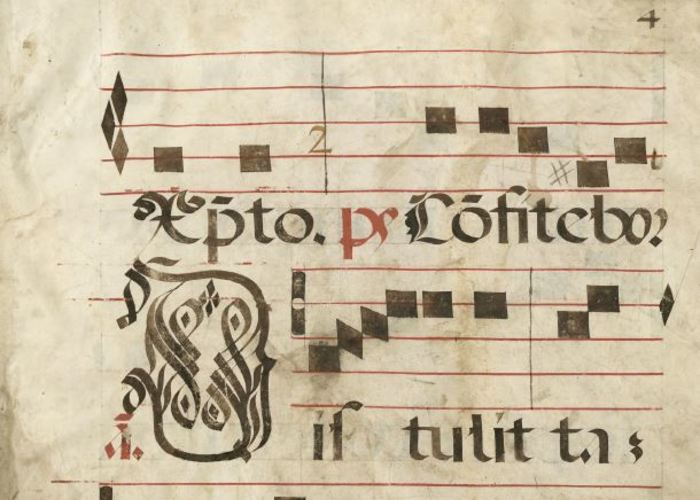 4
2
Xp̄to. ps Cōfitebor
ā. Misit tulit ta s